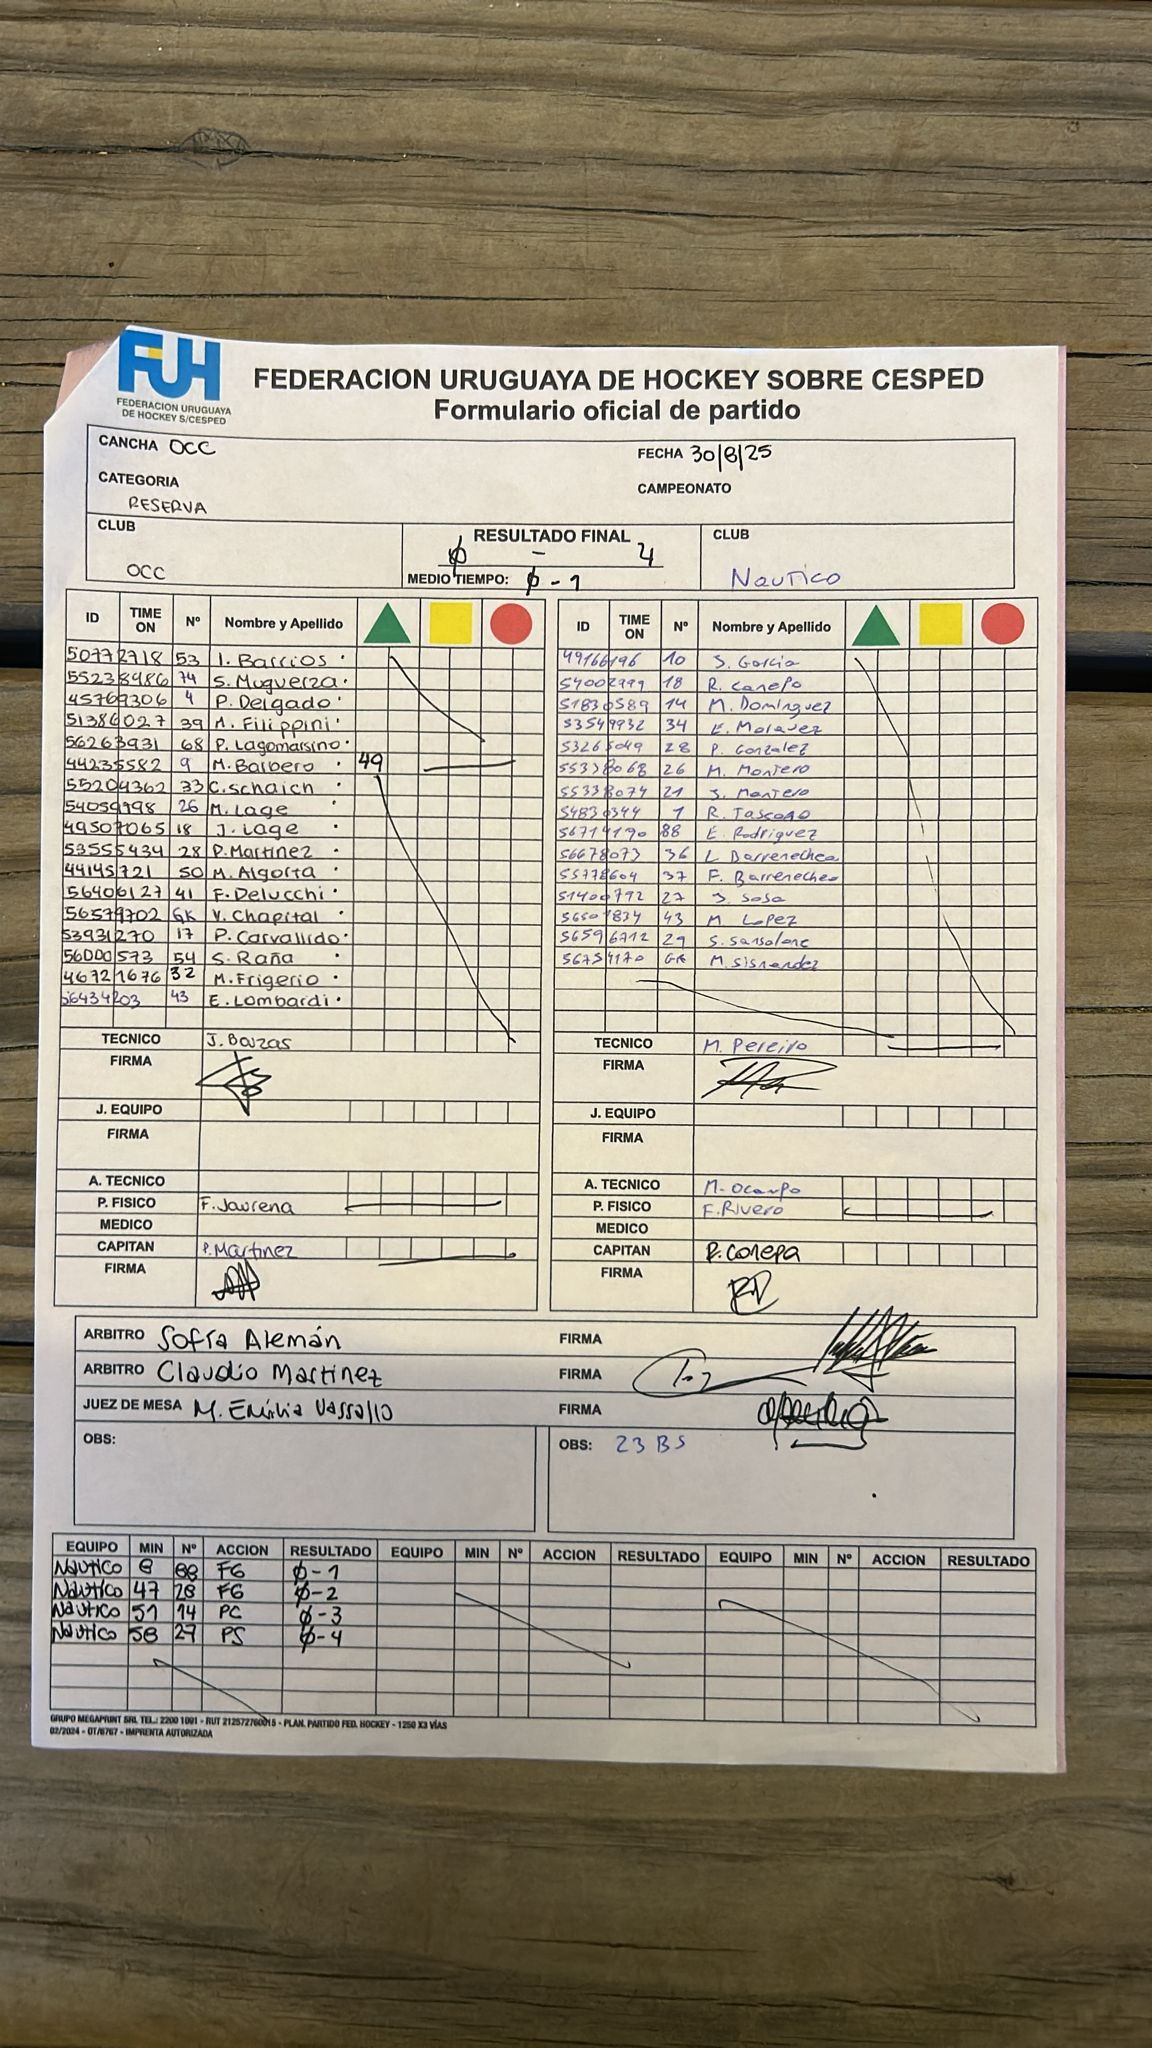 FUH
FEDERACION URUGUAYA
DE HOCKEY S/CESPED
FEDERACION URUGUAYA DE HOCKEY SOBRE CESPED
Formulario oficial de partido
CANCHA OCC FECHA 30/8/25
CATEGORIA CAMPEONATO
RESERVA
CLUB RESULTADO FINAL CLUB
Ø - 4
OCC MEDIO TIEMPO: Ø - 1 Nautico
ID TIME ON Nº Nombre y Apellido ID TIME ON Nº Nombre y Apellido
50772718 53 I. Barrios 49166196 10 S. Garcia
55238986 74 S. Muguerza 54002999 18 R. Canepa
45769306 4 P. Delgado 51830589 14 M. Dominguez
51386027 39 M. Filippini 53549932 34
56263931 68 P. Lagomarsino 28 P. Gonzalez
44235582 9 M. Barbero 49 55338068 26 M. Montero
55204362 33 C. Schaich 55338074 21 S. Montero
54059998 26 M. Lage 1 R. Toscano
49507065 18 J. Lage 88 E. Rodriguez
53555434 28 P. Martinez 56678073 36 L Barrenechea
44145721 50 M. Algorta 55778604 37 F. Barrenechea
56406127 41 F. Delucchi 51400792 27 J. Sosa
56579702 GK V. Chapital 43 M Lopez
53931270 17 P. Carvallido 56596712 29 S. Sansolone
56000573 54 S. Raña GK
46721676 32 M. Frigerio
56434203 43 E. Lombardi
TECNICO J. Bauzas TECNICO M. Pereiro
FIRMA FIRMA
J. EQUIPO J. EQUIPO
FIRMA FIRMA
A. TECNICO A. TECNICO M. Ocampo
P. FISICO F. Jaurena P. FISICO F. Rivero
MEDICO MEDICO
CAPITAN P. Martinez CAPITAN R. Conepa
FIRMA FIRMA
ARBITRO Sofía Alemán FIRMA
ARBITRO Claudio Martinez FIRMA
JUEZ DE MESA M. Emilia Vassallo FIRMA
OBS: OBS: 23 BS
EQUIPO MIN Nº ACCION RESULTADO EQUIPO MIN Nº ACCION RESULTADO EQUIPO MIN Nº ACCION RESULTADO
Nautico 8 88 FG Ø-1
Nautico 47 28 FG Ø-2
Nautico 51 14 PC Ø-3
Nautico 58 27 PS Ø-4
GRUPO MEGAPRINT SRL TEL.: 2200 1091 - RUT 212572760015 - PLAN. PARTIDO FED. HOCKEY - 1250 X3 VÍAS
02/2024 - OT/8767 - IMPRENTA AUTORIZADA